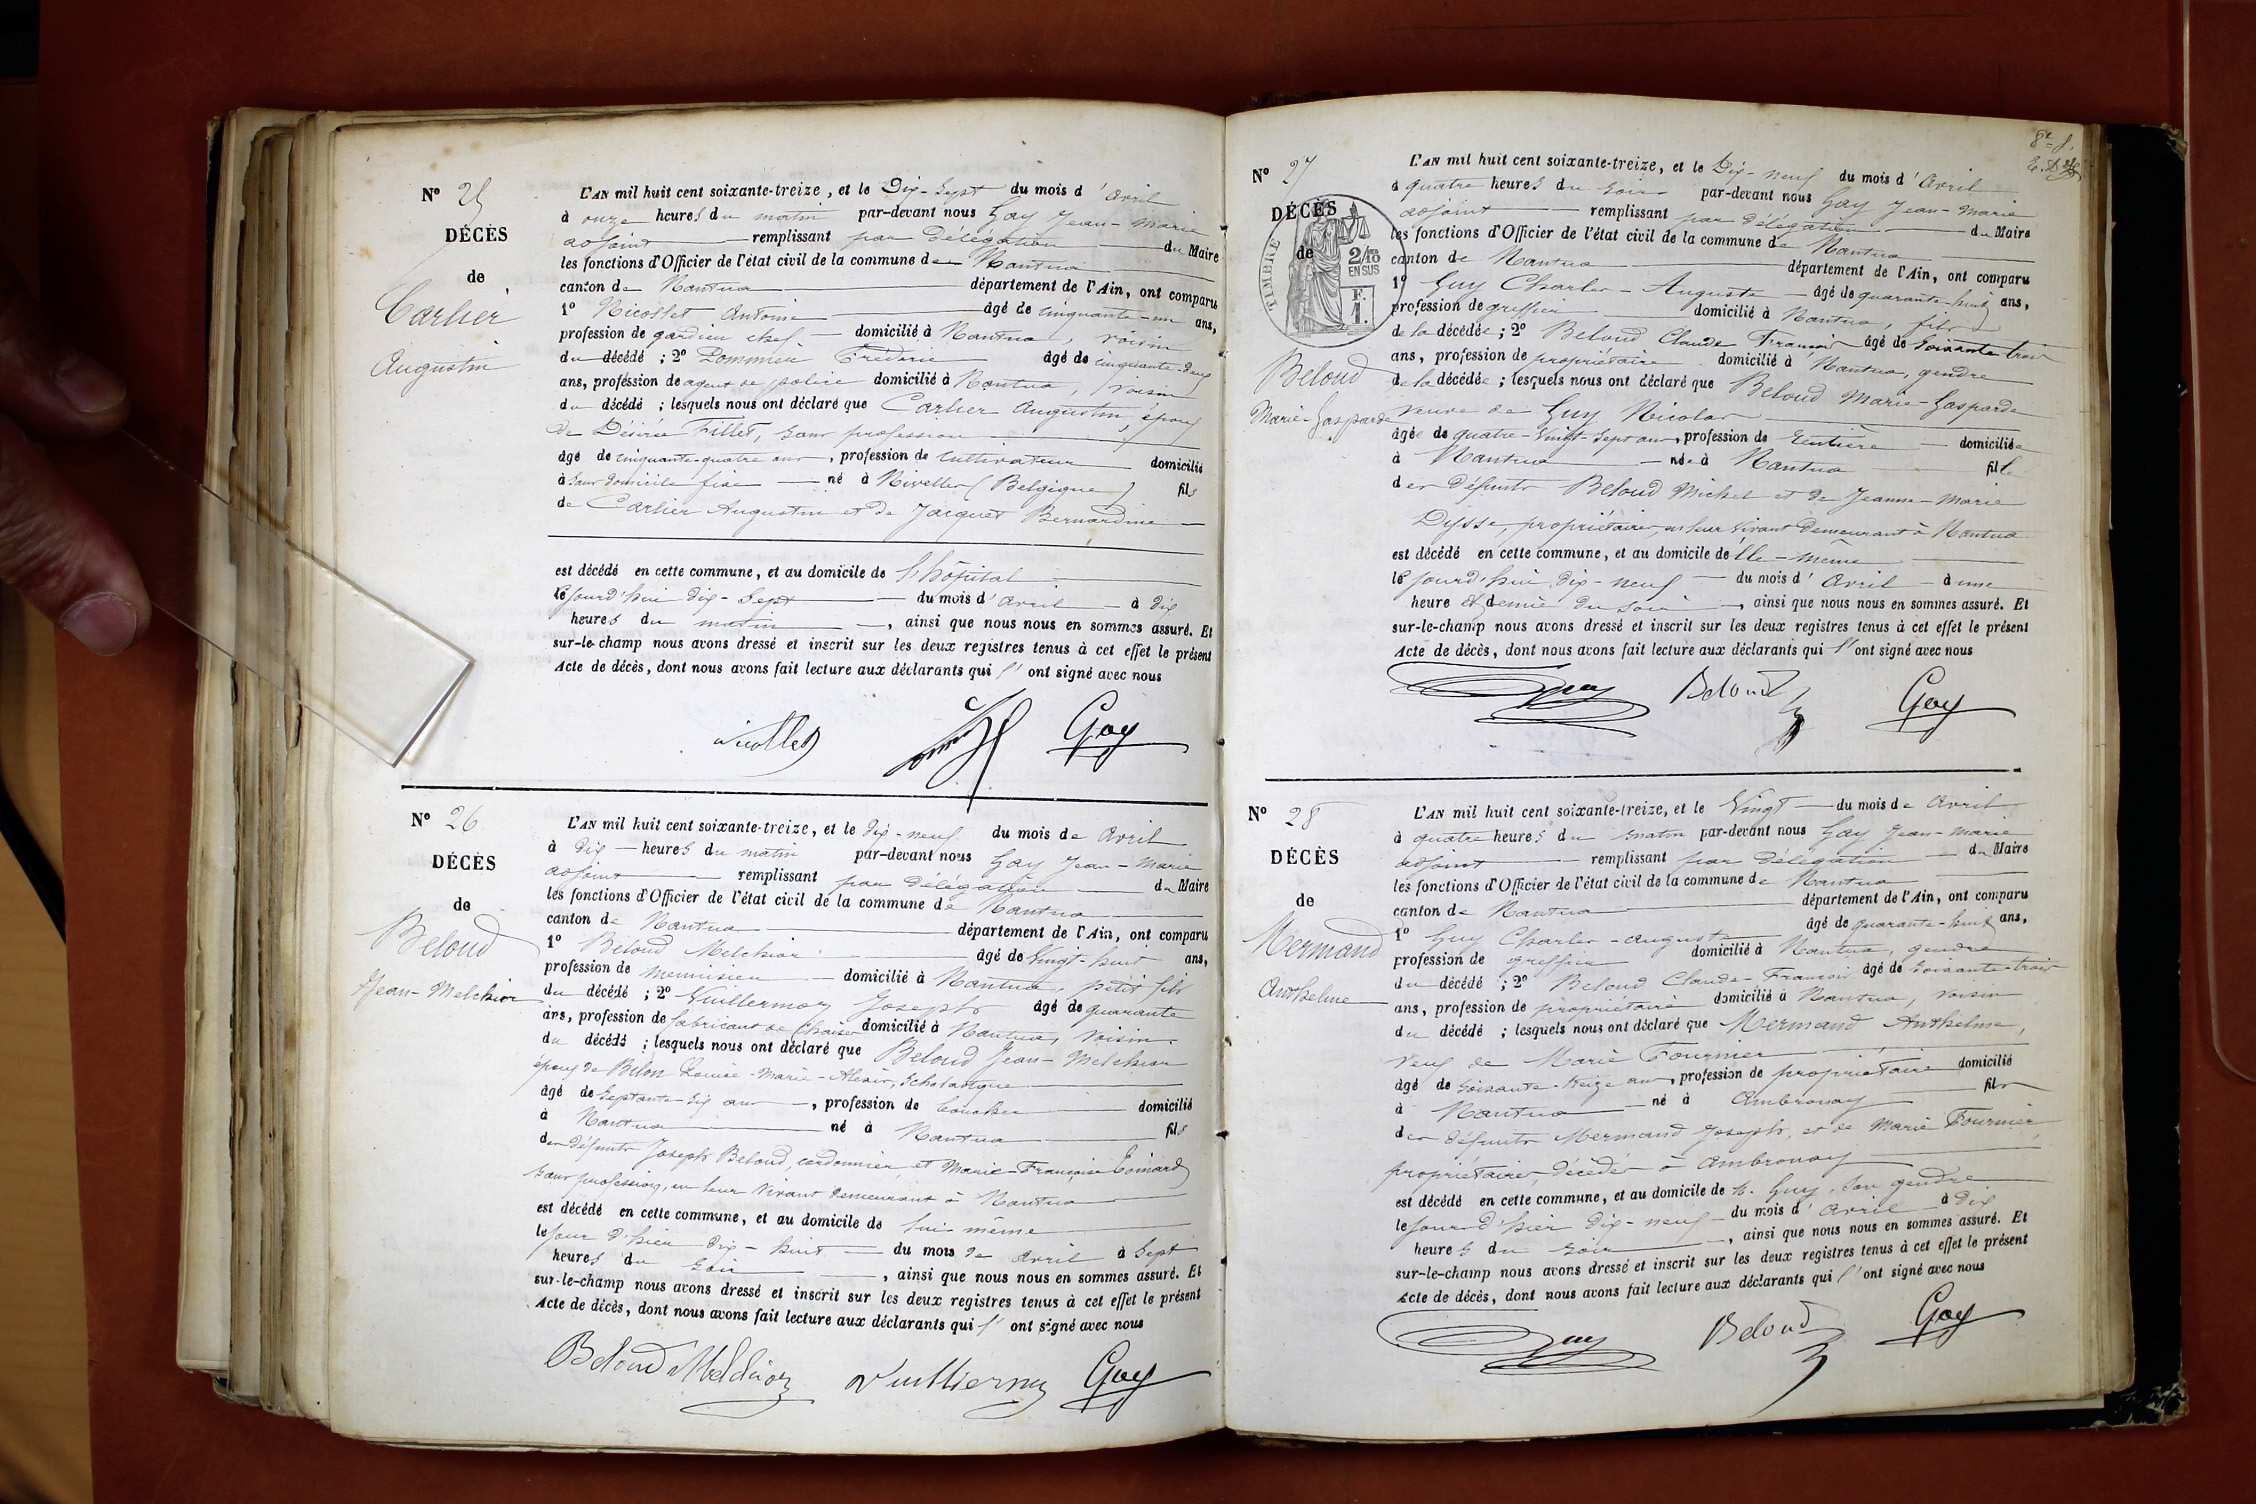 N° 25
DÉCÈS
de
Carlier
Augustin
L'AN mil huit cent soixante-treize, et le Dix-sept du mois d'avril
à onze heures du matin par-devant nous Gay Jean-Marie
adjoint remplissant par délégation du Maire
les fonctions d'Officier de l'état civil de la commune de Nantua
canton de Nantua département de l'Ain, ont comparu
1° Nicollet Antoine âgé de cinquante-un ans,
profession de gardien chef domicilié à Nantua, voisin
du décédé ; 2° Pommier Frédéric âgé de cinquante-deux
ans, profession de agent de police domicilié à Nantua, voisin
du décédé ; lesquels nous ont déclaré que Carlier Augustin, époux
de Désirée Fillet, sans profession
âgé de cinquante-quatre ans, profession de cultivateur domicilié
à sans domicile fixe né à Nivelles (Belgique) fils
de Carlier Augustin et de Jacquet Bernardine
est décédé en cette commune, et au domicile de l'hôpital
le jourd'hui dix-sept du mois d'avril à dix
heures du matin, ainsi que nous nous en sommes assuré. Et
sur-le-champ nous avons dressé et inscrit sur les deux registres tenus à cet effet le présent
Acte de décès, dont nous avons fait lecture aux déclarants qui l'ont signé avec nous
Nicollet Gay
N° 26
DÉCÈS
de
Beloud
Jean-Melchior
L'AN mil huit cent soixante-treize, et le dix-neuf du mois de avril
à dix heures du matin par-devant nous Gay Jean-Marie
adjoint remplissant par délégation du Maire
les fonctions d'Officier de l'état civil de la commune de Nantua
canton de Nantua département de l'Ain, ont comparu
1° Beloud Melchior âgé de vingt-huit ans,
profession de menuisier domicilié à Nantua, petit fils
du décédé ; 2° Vuillermoz Joseph âgé de quarante
ans, profession de fabricant de chaises domicilié à Nantua, voisin
du décédé ; lesquels nous ont déclaré que Beloud Jean-Melchior
époux de Louise-Marie-Alexis,
âgé de septante-six ans, profession de domicilié
à Nantua né à Nantua fils
des défunts Joseph Beloud, cordonnier et Marie-Françoise
sans profession, en leur vivant demeurant à Nantua
est décédé en cette commune, et au domicile de lui-même
le jour d'hier dix-huit du mois de avril à sept
heures du soir, ainsi que nous nous en sommes assuré. Et
sur-le-champ nous avons dressé et inscrit sur les deux registres tenus à cet effet le présent
Acte de décès, dont nous avons fait lecture aux déclarants qui l'ont signé avec nous
Beloud Melchior Vuilliermoz Gay
8e f.
N° 27
DÉCÈS
de
TIMBRE
2/10
EN SUS
F.
1.
Beloud
Marie-Gasparde
L'AN mil huit cent soixante-treize, et le Dix-neuf du mois d'avril
à quatre heures du soir par-devant nous Gay Jean-Marie
adjoint remplissant par délégation du Maire
les fonctions d'Officier de l'état civil de la commune de Nantua
canton de Nantua département de l'Ain, ont comparu
1° Guy Charles-Auguste âgé de quarante-huit ans,
profession de greffier domicilié à Nantua, fils
de la décédée ; 2° Beloud Claude François âgé de soixante trois
ans, profession de propriétaire domicilié à Nantua, gendre
de la décédée ; lesquels nous ont déclaré que Beloud Marie-Gasparde
veuve de Guy Nicolas
âgée de quatre-vingt-sept ans, profession de rentière domiciliée
à Nantua née à Nantua fille
des défunts Beloud Michel et de Jeanne-Marie
Dysse, propriétaires en leur vivant demeurant à Nantua
est décédé en cette commune, et au domicile de elle-même
le jourd'hui dix-neuf du mois d'avril à une
heure et demie du soir, ainsi que nous nous en sommes assuré. Et
sur-le-champ nous avons dressé et inscrit sur les deux registres tenus à cet effet le présent
Acte de décès, dont nous avons fait lecture aux déclarants qui l'ont signé avec nous
Guy Beloud Gay
N° 28
DÉCÈS
de
Mermand
Anthelme
L'AN mil huit cent soixante-treize, et le Vingt du mois de avril
à quatre heures du matin par-devant nous Gay Jean-Marie
adjoint remplissant par délégation du Maire
les fonctions d'Officier de l'état civil de la commune de Nantua
canton de Nantua département de l'Ain, ont comparu
1° Guy Charles-Auguste âgé de quarante-huit ans,
profession de greffier domicilié à Nantua, gendre
du décédé ; 2° Beloud Claude-François âgé de soixante-trois
ans, profession de propriétaire domicilié à Nantua, voisin
du décédé ; lesquels nous ont déclaré que Mermand Anthelme,
veuf de Marie Fournier
âgé de soixante-seize ans, profession de propriétaire domicilié
à Nantua né à Ambronay fils
des défunts Mermand Joseph, et de Marie Fournier
propriétaires, décédés à Ambronay
est décédé en cette commune, et au domicile de M. Guy, son gendre
le jour d'hier dix-neuf du mois d'avril à dix
heures du soir, ainsi que nous nous en sommes assuré. Et
sur-le-champ nous avons dressé et inscrit sur les deux registres tenus à cet effet le présent
Acte de décès, dont nous avons fait lecture aux déclarants qui l'ont signé avec nous
Guy Beloud Gay